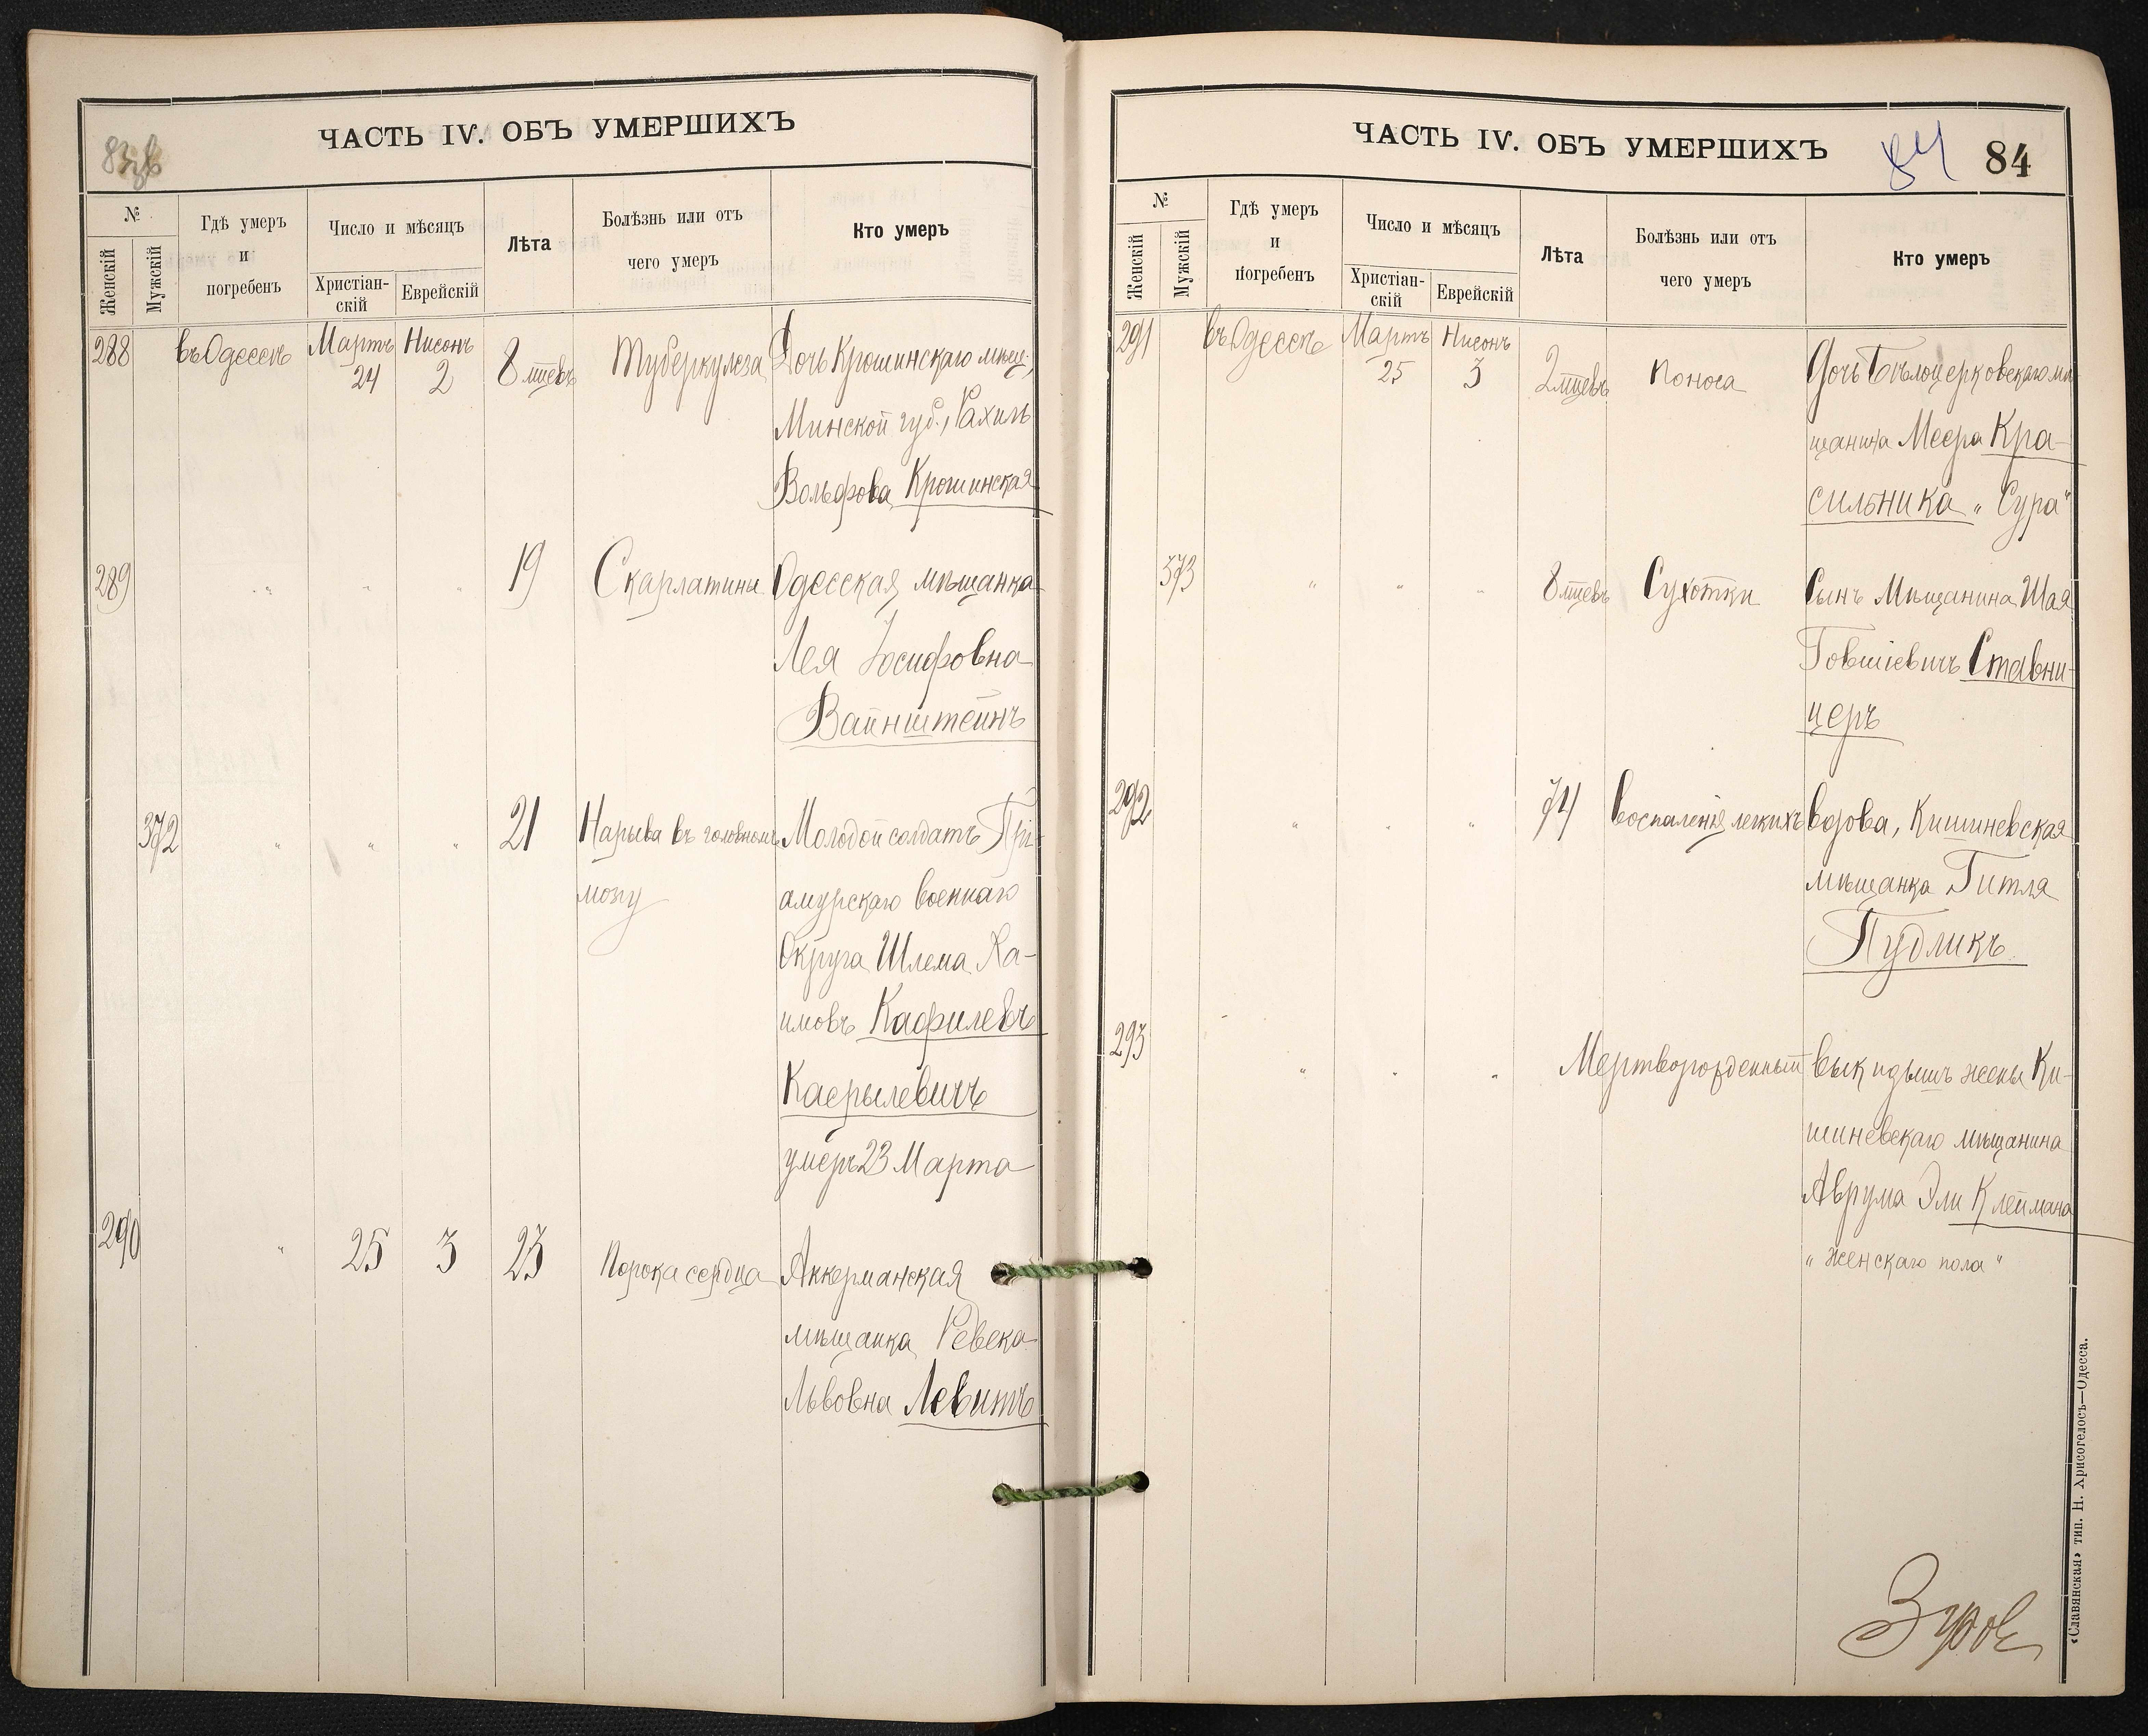 ЧАСТЬ IV. ОБЪ УМЕРШИХЪ
№
Женскій
Мужскій
Гдѣ умеръ
и
погребенъ
Число и мѣсяцъ
Христіан-
скій
Еврейскій
Лѣта
Болѣзнь или отъ
чего умеръ
Кто умеръ
288 въ Одессѣ Мартъ 24 Нисонъ 2 8 мцевъ Туберкулеза Дочь Крошинскаго мѣщ.,
Минской губ., Рахиль
Вольфова Крошинская
289 " " " 19 Скарлатины Одесская мѣщанка
Лея Іосифовна
Вайнштейнъ
372 " " " 21 Нарыва въ головномъ Молодой солдатъ Прі-
мозгу амурскаго военнаго
Округа Шлема Ха-
имовъ Кафилевъ
Касрылевичъ
умеръ 23 Марта
290 " 25 3 23 Порока сердца Аккерманская
мѣщанка Ревека
Львовна Левитъ
ЧАСТЬ IV. ОБЪ УМЕРШИХЪ
84 84
№
Женскій
Мужскій
Гдѣ умеръ
и
погребенъ
Число и мѣсяцъ
Христіан-
скій
Еврейскій
Лѣта
Болѣзнь или отъ
чего умеръ
Кто умеръ
291 въ Одессѣ Мартъ 25 Нисонъ 3 2 мцевъ Поноса Дочь Бѣлоцерковскаго мѣ
щанина Меера Кра-
сильника „Сура“
373 " " " 8 мцевъ Сухотки Сынъ Мѣщанина Шая
Говшіевичъ Ставни-
церъ
292 " " " 74 Воспаленія легкихъ вдова, Кишиневская
мѣщанка Гитля
Пудликъ
293 " " " Мертворожденный выкидышъ жены Ки-
шиневскаго мѣщанина
Аврума Эли Клеймана
„Женскаго пола“
«Славянская» тип. Н. Хрисогелосъ—Одесса.